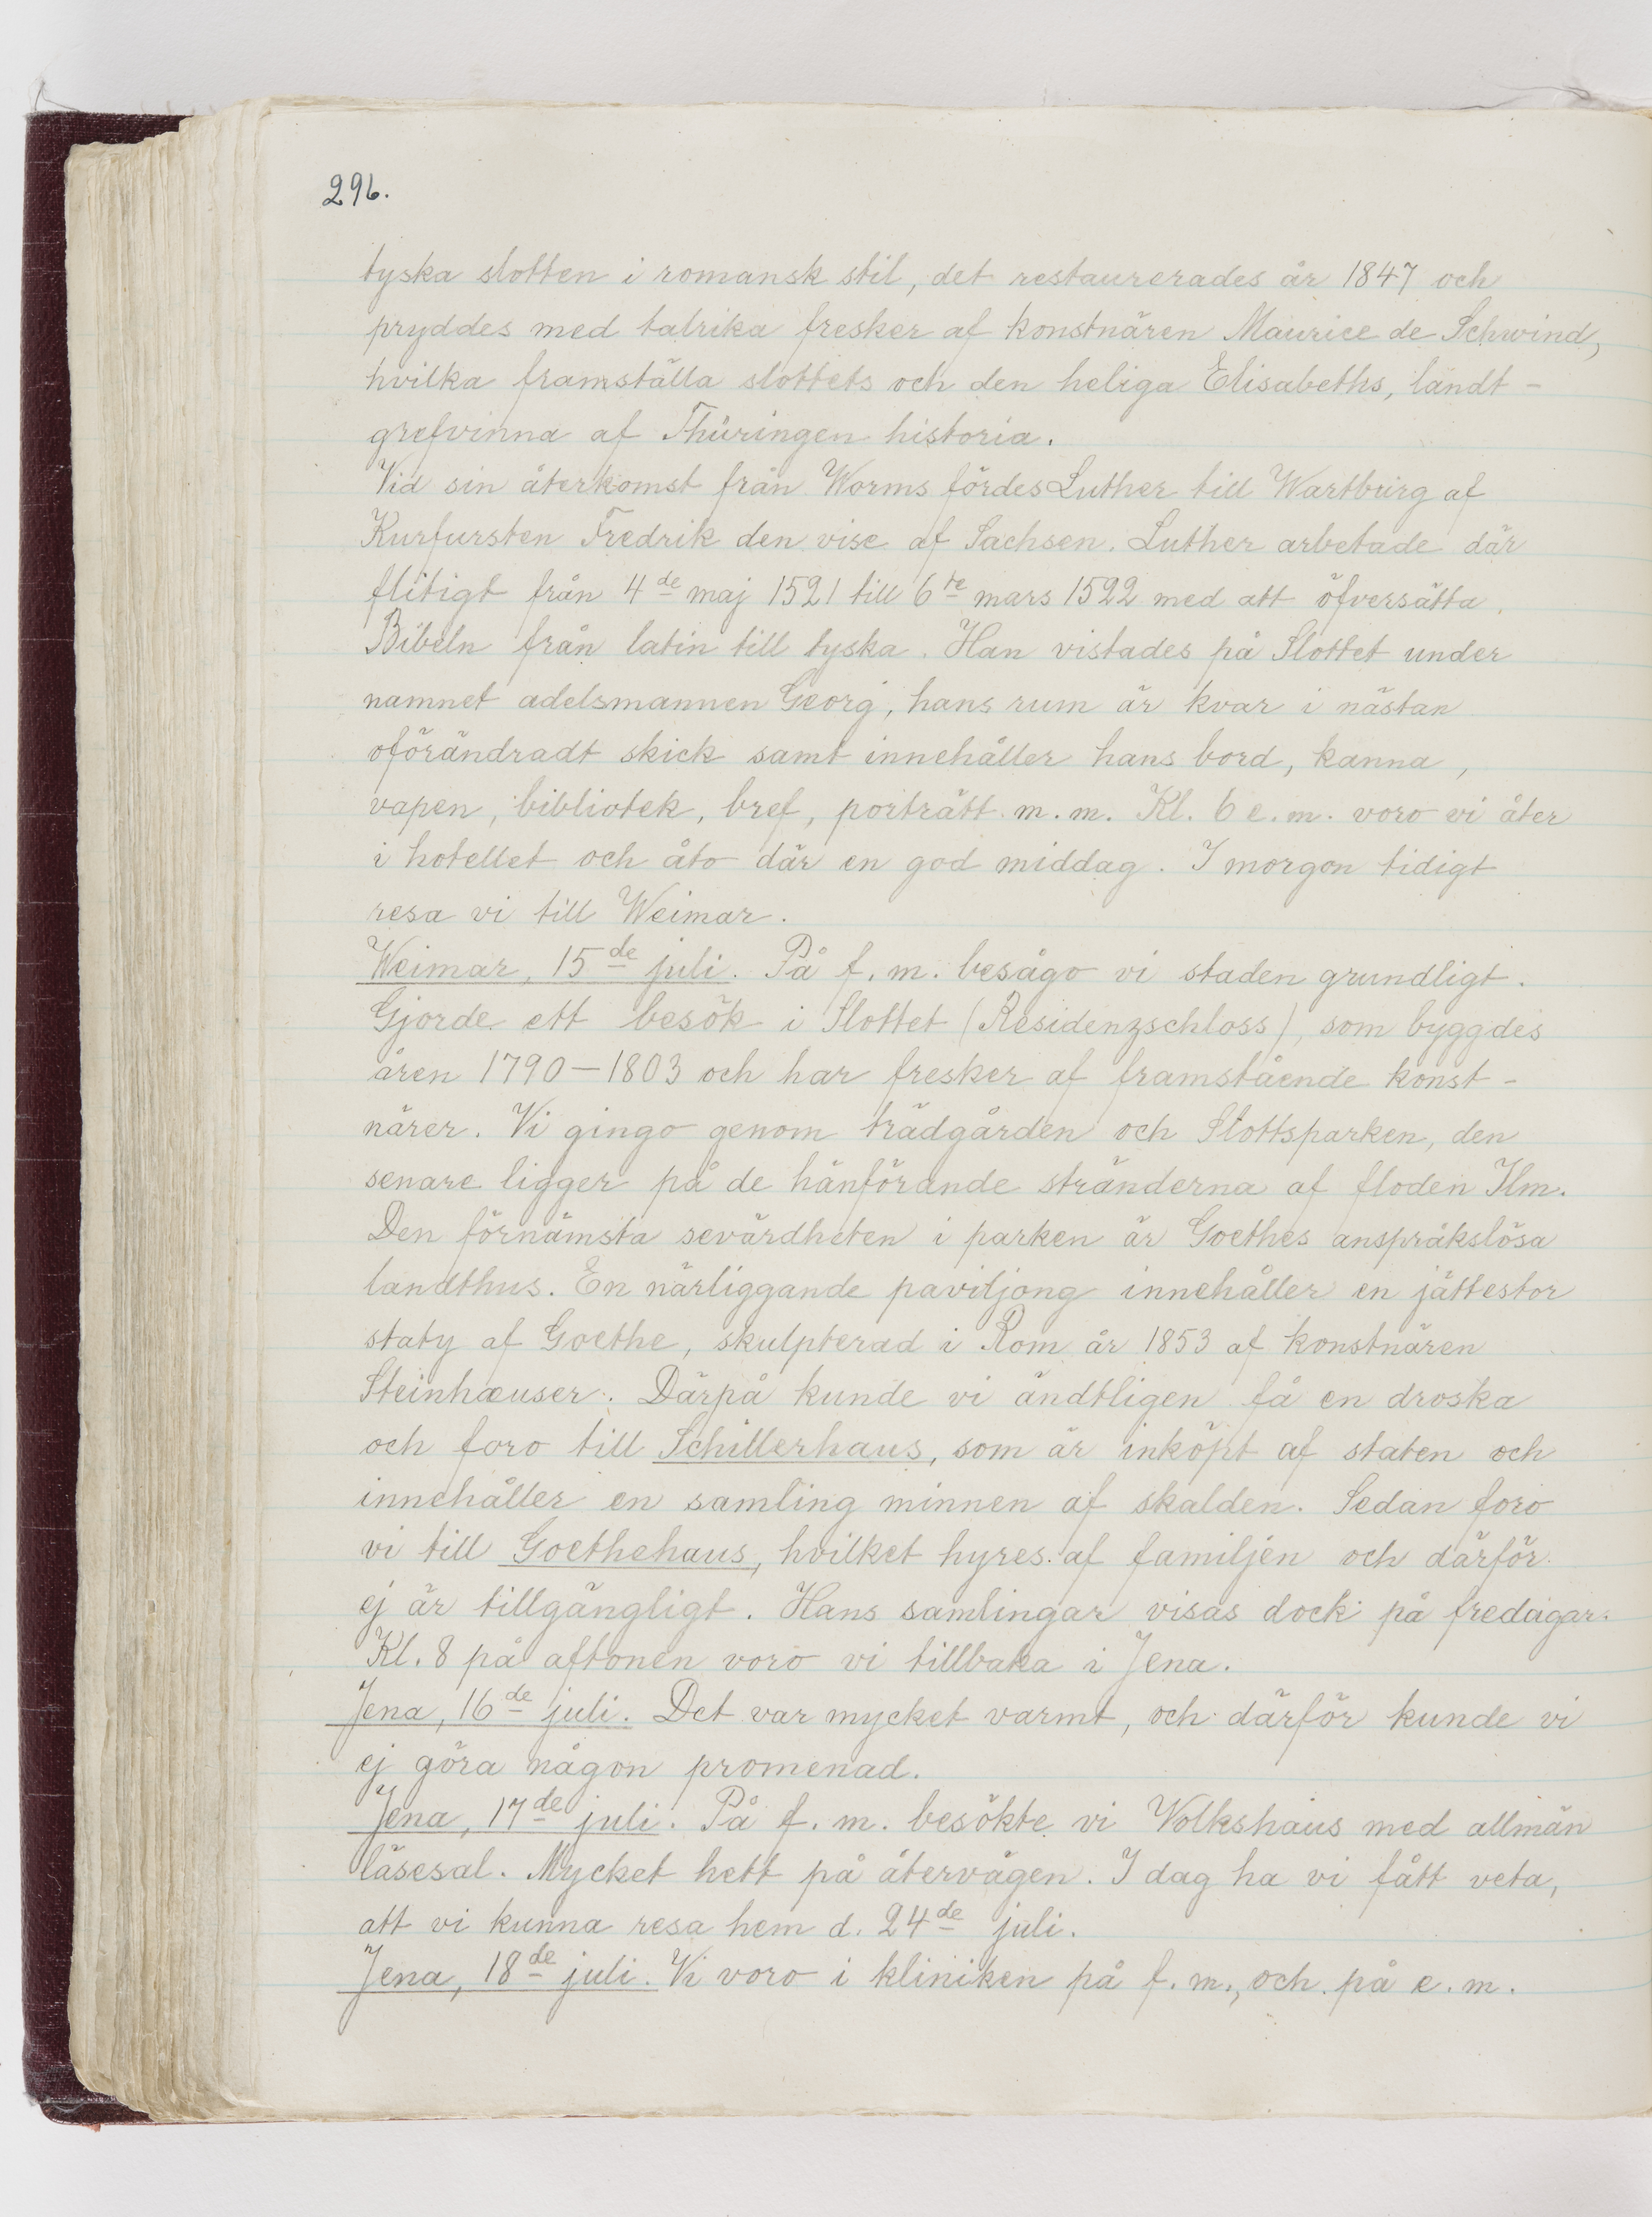 296.
tyska slotten i romansk stil, det restaurerades år 1847 och
pryddes med talrika fresker af konstnären Maurice de Schwind,
hvilka framställa slottets och den heliga Elisabeths, landt-
grefvinna af Thüringen historia.
Vid sin återkomst från Worms fördes Luther till Wartburg af
Kurfursten Fredrik den vise af Sachsen. Luther arbetade där
flitigt från 4de maj 1521 till 6te mars 1522 med att öfversätta
Bibeln från latin till tyska. Han vistades på Slottet under
namnet adelsmannen Georg, hans rum är kvar i nästan
oförändradt skick samt innehåller hans bord, kanna,
vapen, bibliotek, bref, porträtt m.m. Kl. 6 e.m. voro vi åter
i hotellet och åto där en god middag. I morgon tidigt
resa vi till Weimar.
Weimar, 15de juli. På f.m. besågo vi staden grundligt.
Gjorde ett besök i Slottet (Residenzschloss), som byggdes
åren 1790–1803 och har fresker af framstående konst-
närer. Vi gingo genom trädgården och Slottsparken, den
senare ligger på de hänförande stränderna af floden Ilm.
Den förnämsta sevärdheten i parken är Goethes anspråkslösa
landthus. En närliggande paviljong innehåller en jättestor
staty af Goethe, skulpterad i Rom år 1853 af konstnären
Steinhæuser. Därpå kunde vi ändtligen få en droska
och foro till Schillerhaus, som är inköpt af staten och
innehåller en samling minnen af skalden. Sedan foro
vi till Goethehaus, hvilket hyres af familjen och därför
ej är tillgängligt. Hans samlingar visas dock på fredagar.
Kl. 8 på aftonen voro vi tillbaka i Jena.
Jena, 16de juli. Det var mycket varmt, och därför kunde vi
ej göra någon promenad.
Jena, 17de juli. På f.m. besökte vi Volkshaus med allmän
läsesal. Mycket hett på återvägen. I dag ha vi fått veta,
att vi kunna resa hem d. 24de juli.
Jena, 18de juli. Vi voro i kliniken på f.m., och på e.m.